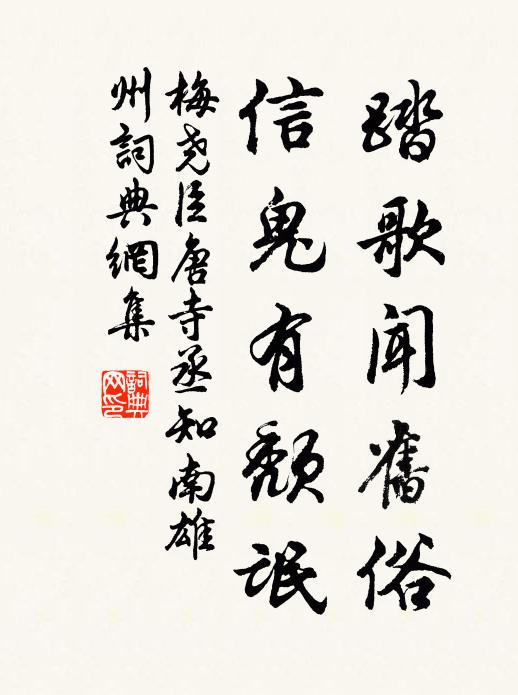 踏歌聞舊俗
信鬼有頽氓
梅堯臣唐寺丞知南雄
州詞典網集
詞典网印